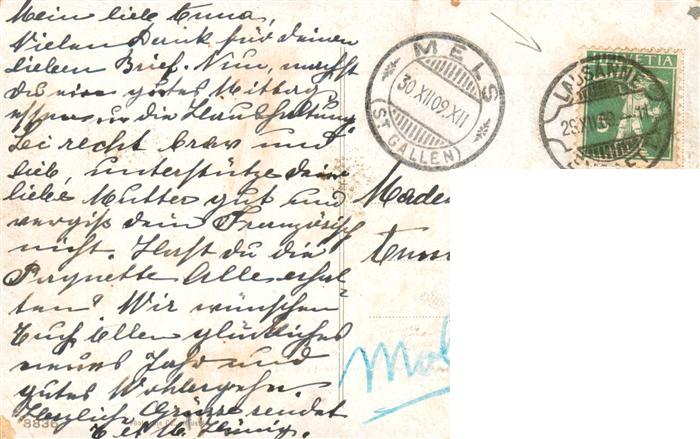 Mein liebe Emma,
Vielen Dank für deinen
lieben Brief. Nun, machst
du ein gutes Mittag
essen in die Haushaltung
Sei recht brav und
lieb, unterstütze deine
liebe Mutter gut und
vergiß dein Französisch
nicht. Hast du die
Paquette Alle erhal-
ten? Wir wünschen
Euch Allen glückliches
neues Jahr und
gutes Wohlergehn.
Herzliche Grüsse sendet
MELS
30.XII.09.XII
(ST. GALLEN)
HELVETIA
LAUSANNE
5
Made
Emm
Mol
8836